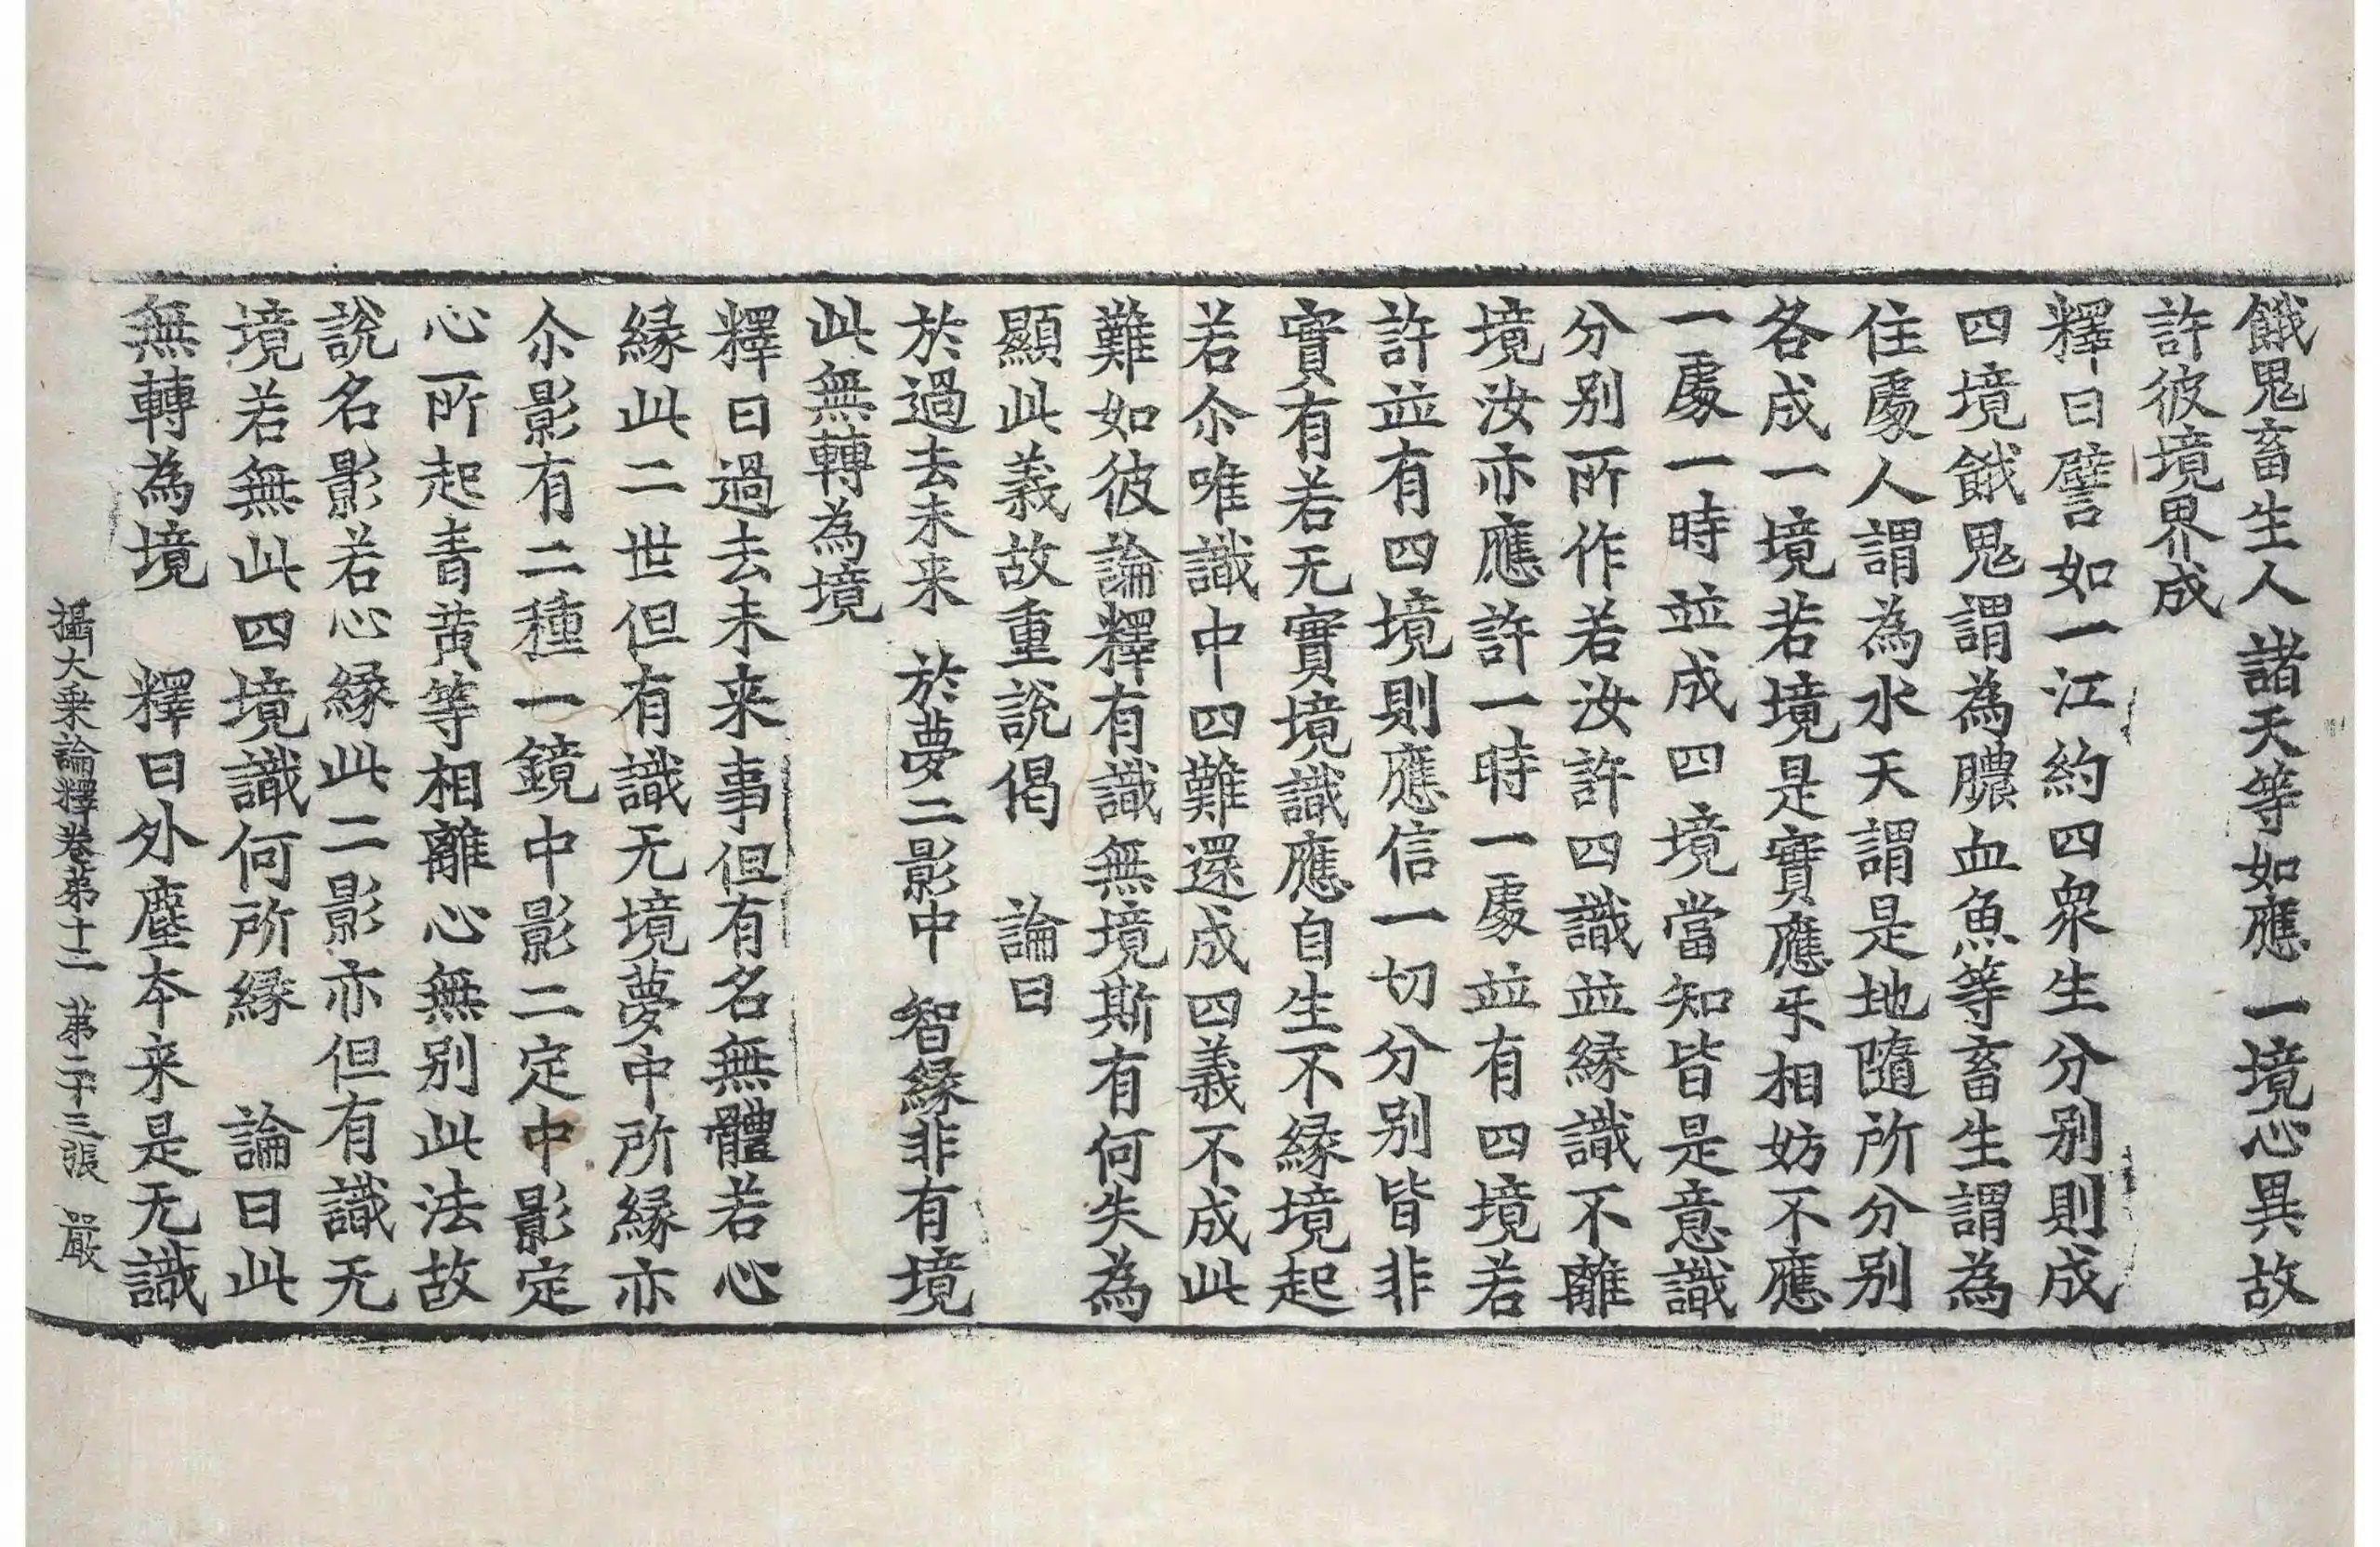 餓鬼畜生人 諸天等如應 一境心異故
許彼境界成
釋曰譬如一江約四衆生分别則成
四境餓鬼謂為膿血魚等畜生謂為
住處人謂為水天謂是地隨所分别
各成一境若境是實應㸦相妨不應
一處一時並成四境當知皆是意識
分别所作若汝許四識並緣識不離
境汝亦應許一時一處並有四境若
許並有四境則應信一切分别皆非
實有若无實境識應自生不緣境起
若尒唯識中四難還成四義不成此
難如彼論釋有識無境斯有何失為
顯此義故重說偈 論曰
於過去未来 於夢二影中 智緣非有境
此無轉為境
釋曰過去未来事但有名無體若心
緣此二世但有識无境夢中所緣亦
尒影有二種一鏡中影二定中影定
心所起青黄等相離心無别此法故
說名影若心緣此二影亦但有識无
境若無此四境識何所緣 論曰此
無轉為境 釋曰外塵夲来是无識
攝大乗論釋卷苐十二 苐二十三張 嚴